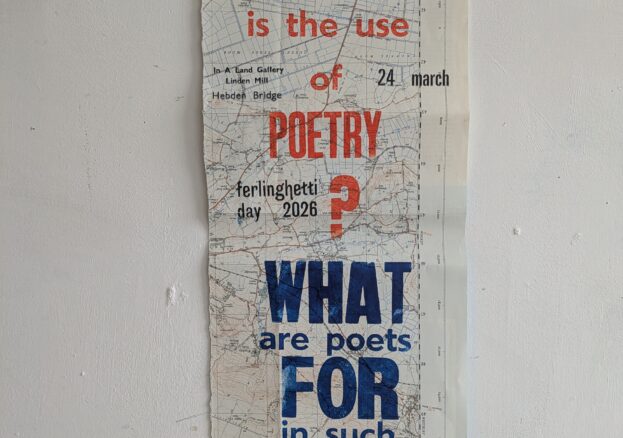 is the use
In A Land Gallery
Linden Mill
Hebden Bridge
of
24 march
POETRY
ferlinghetti
day 2026
?
WHAT
are poets
FOR
in such